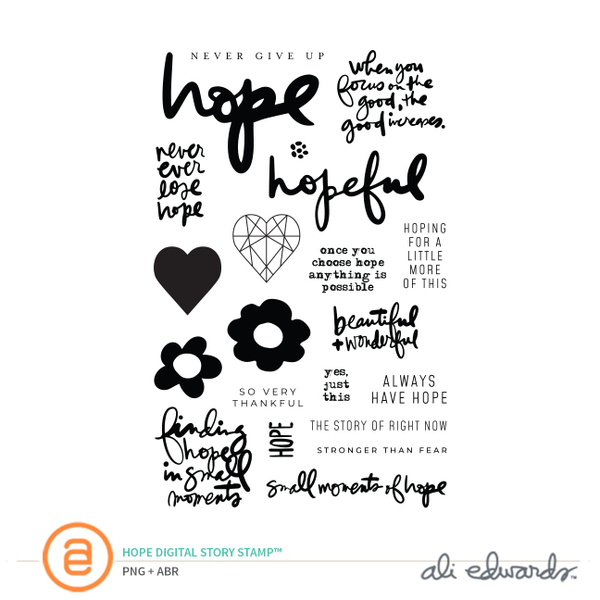 NEVER GIVE UP
hope
when you
focus on the
good, the
good increases.
never
ever
lose
hope
hopeful
HOPING
FOR A
LITTLE
MORE
OF THIS
once you
choose hope
anything is
possible
beautiful
+ wonderful
yes,
just
this
ALWAYS
HAVE HOPE
SO VERY
THANKFUL
finding
hope
in small
moments
HOPE
THE STORY OF RIGHT NOW
STRONGER THAN FEAR
small moments of hope
ae
HOPE DIGITAL STORY STAMP™
PNG + ABR
ali edwards™